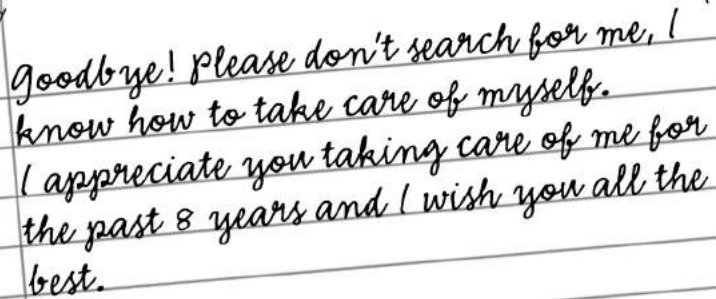 goodbye! Please don't search for me, I
know how to take care of myself.
I appreciate you taking care of me for
the past 8 years and I wish you all the
best.